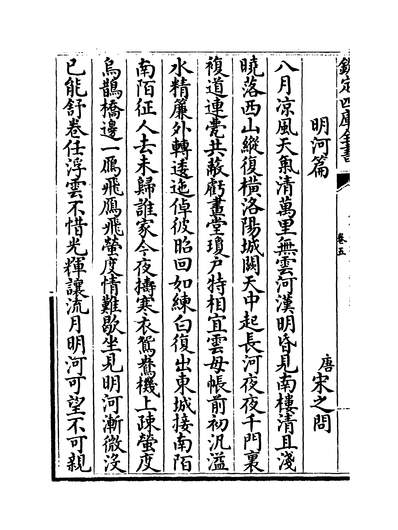 欽定四庫全書
卷五
明河篇
唐宋之問
八月凉風天氣清萬里無雲河漢明昏見南樓清且淺
曉落西山縱復橫洛陽城闕天中起長河夜夜千門裏
複道連甍共蔽虧畫堂瓊户特相宜雲母帳前初汎溢
水精簾外轉逶迤倬彼昭回如練白復出東城接南陌
南陌征人去未歸誰家今夜擣寒衣鴛鴦機上疎螢度
烏鵲橋邊一鴈飛鴈飛螢度情難歇坐見明河漸微没
已能舒卷任浮雲不惜光輝讓流月明河可望不可親